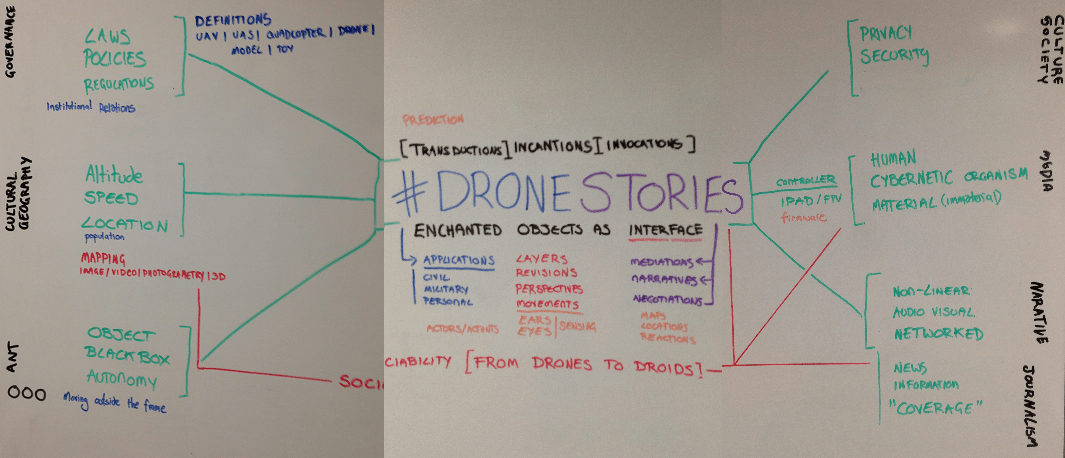 GOVERNANCE
LAWS
POLICIES
REGULATIONS
Institutional Relations
DEFINITIONS
UAV | UAS | QUADCOPTER | DRONE |
MODEL | TOY
CULTURAL
GEOGRAPHY
Altitude
SPEED
LOCATION
population
MAPPING
IMAGE/VIDEO|PHOTOGRAMETRY|3D
ANT
OBJECT
BLACK BOX
AUTONOMY
Moving outside the frame
PREDICTION
[TRANSDUCTIONS] INCANTIONS [INVOCATIONS]
#DRONESTORIES
ENCHANTED OBJECTS AS INTERFACE
APPLICATIONS
CIVIL
MILITARY
PERSONAL
ACTORS/ACTANTS
LAYERS
REVISIONS
PERSPECTIVES
MOVEMENTS
EARS
EYES
SENSING
MEDIATIONS
NARRATIVES
NEGOTIATIONS
MAPS
LOCATIONS
REACTIONS
SOCI
CIABILITY [FROM DRONES TO DROIDS]
PRIVACY
SECURITY
CULTURE
SOCIETY
CONTROLLER
IPAD/FIN
firmware
HUMAN
CYBERNETIC ORGANISM
MATERIAL (immaterial)
MEDIA
NON-LINEAR
AUDIO VISUAL
NETWORKED
NARATIVE
NEWS
INFORMATION
"COVERAGE"
JOURNALISM